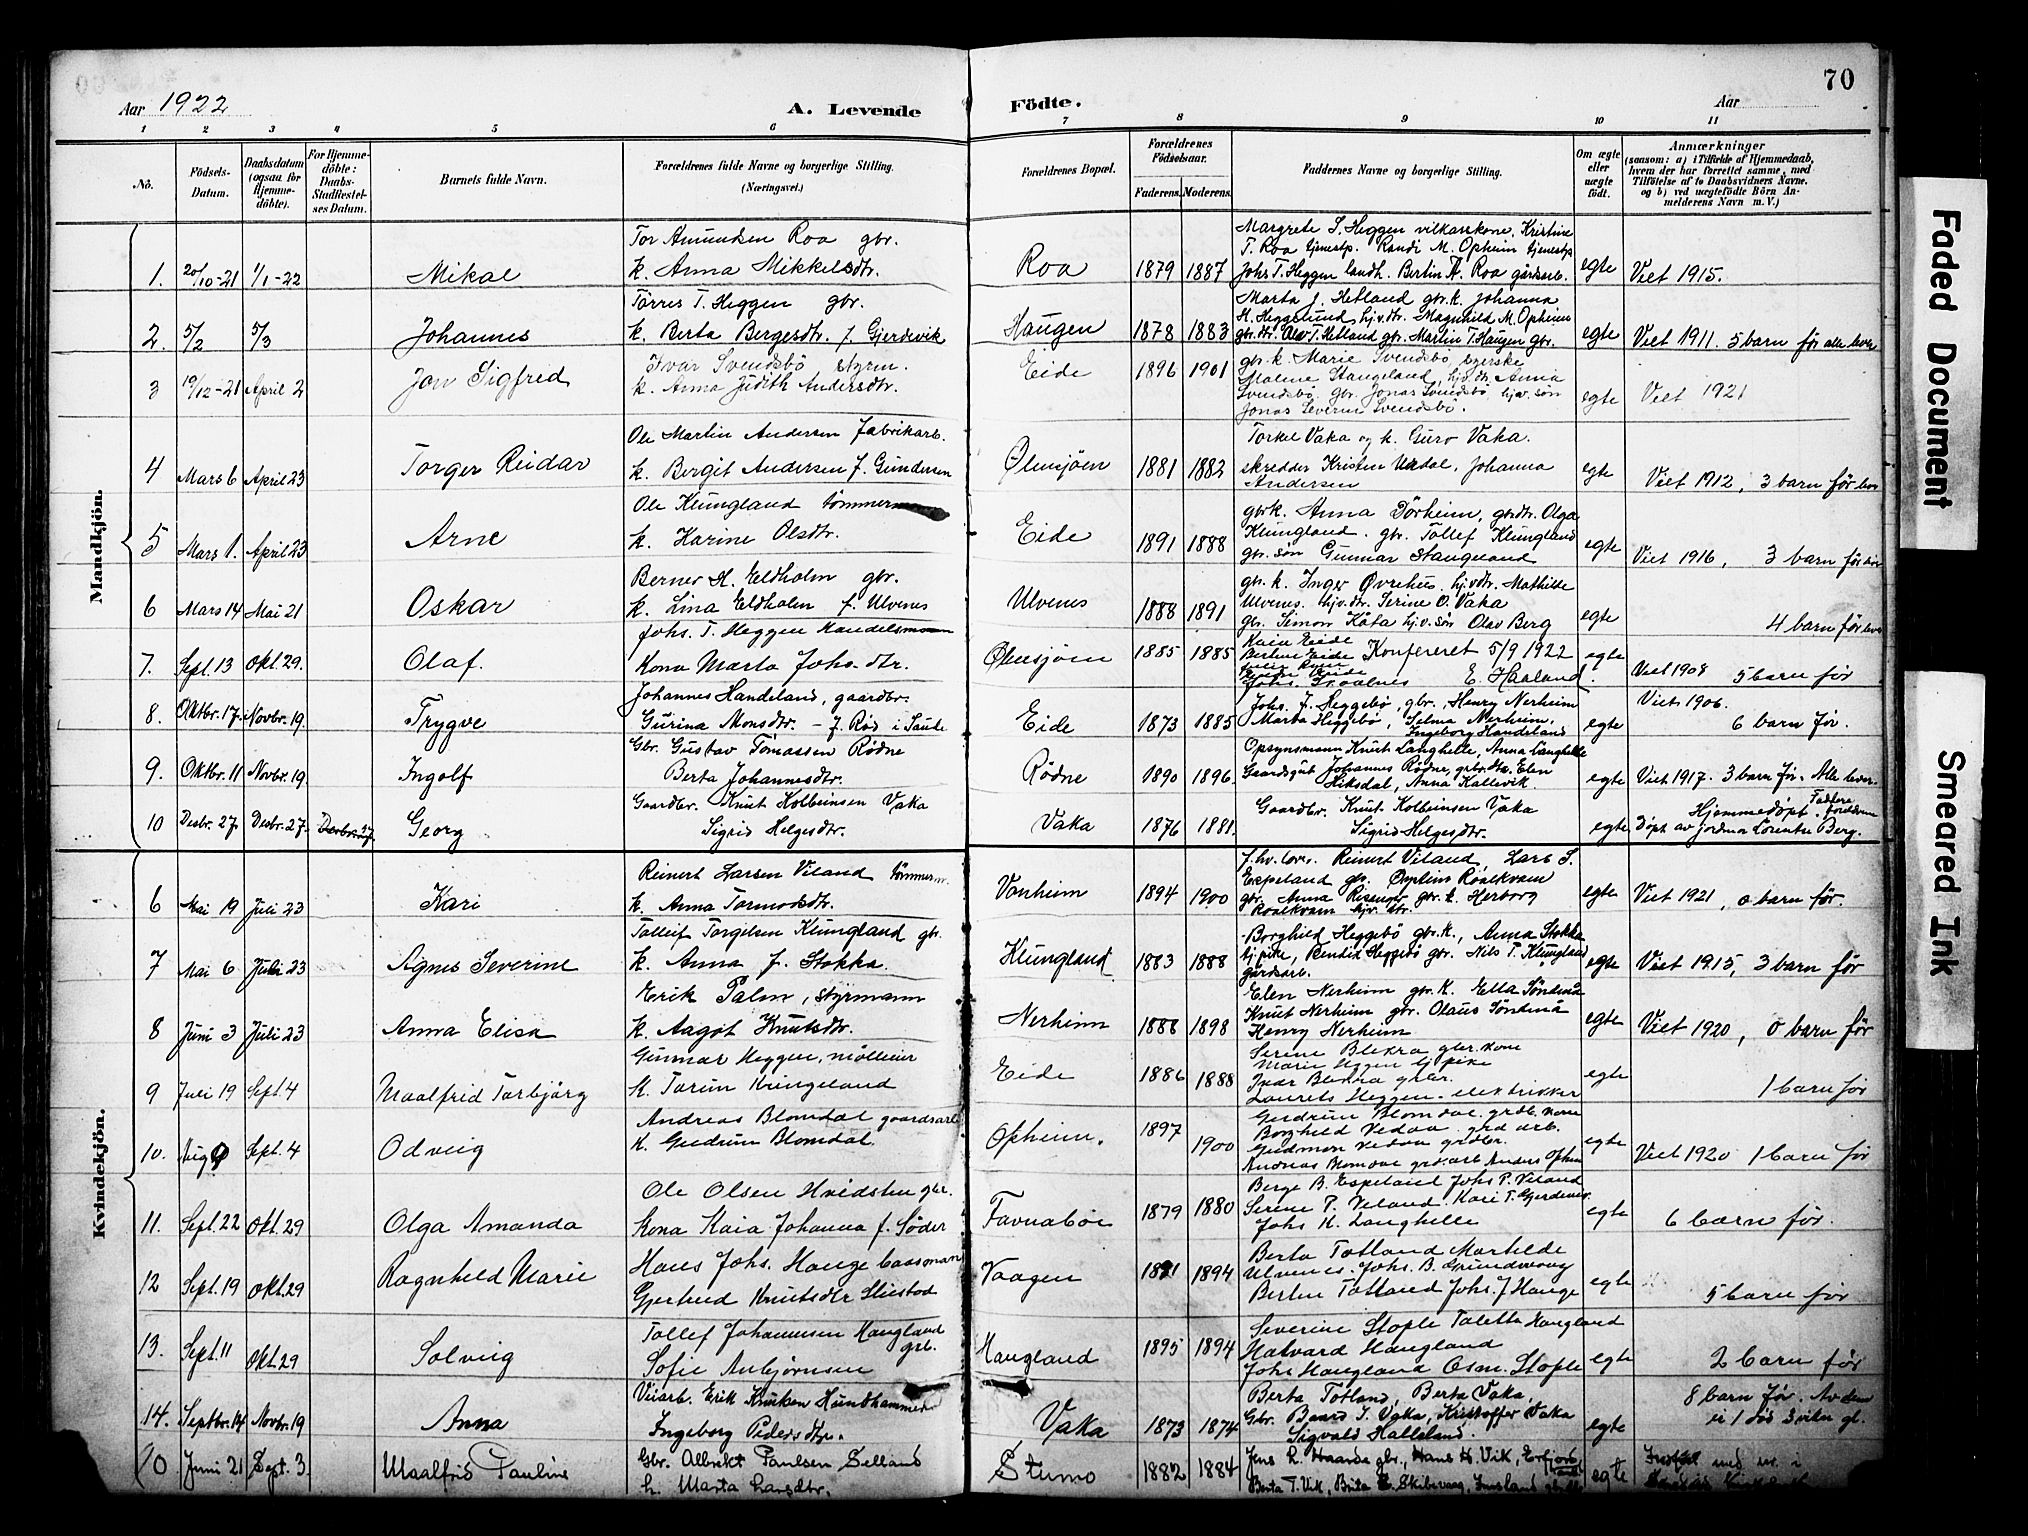 70
Aar 1922
A. Levende
Födte.
Aar
1 2 3 4 5 6 7 8 9 10 11
No.
Födsels-Datum.
Daabsdatum (ogsaa for Hjemme-döbte).
For Hjemme-döbte: Daabs-Stadfæstel-ses Datum.
Barnets fulde Navn.
Forældrenes fulde Navne og borgerlige Stilling. (Næringsvei.)
Forældrenes Bopæl.
Forældrenes Födselsaar.
Faderens. Moderens.
Faddernes Navne og borgerlige Stilling.
Om ægte eller uægte födt.
Anmærkninger
(saasom: a) i Tilfælde af Hjemmedaab, hvem der har forrettet samme, med Tilföielse af to Daabsvidners Navne, og b) ved uægtefödte Börn An-melderens Navn m. V.)
Mandkjön.
1. 20/10-21 1/1-22 Mikal
Tor Amundsen Roa gbr.
k. Anna Mikkelsdtr.
Roa 1879 1887
Margrete S. Heggen vilkaarskone, Kristine
T. Roa tjenestp. Randi M. Opheim tjenestp
Johs T. Heggen landh. Bertin A. Roa gårdsarb.
egte Viet 1915.
2. 5/2 5/3 Johannes
Tørres T. Heggen gbr.
k. Berta Bergesdtr. f. Gjerdevik
Haugen 1878 1883
Marta J. Hetland gbr.k. Johanna
H. Heggelund hjv.dtr. Magnhild M. Opheim
gbr.dtr. Olav T. Hetland gbr. Martin T. Haugen gbr.
egte Viet 1911. 5 barn før alle lever
3 19/12-21 April 2 Jon Sigfred
Ivar Svendsbö styrm.
k. Anna Judith Andersdtr.
Eide 1896 1901
gbr.k. Marie Svendsbö syerske
Malene Stangeland, hjv.dtr. Anna
Svendsbö. gbr. Jonas Svendsbö, hjv. søn
Jonas Severin Svendsbö.
egte Viet 1921
4 Mars 6 April 23 Torger Reidar
Ole Martin Andersen Fabrikarb.
k. Bergit Andersen f. Gundersen
Ølensjøen 1881 1882
Torkel Vaka og k. Guro Vaka.
skredder Kristen Urdal, Johanna
Andersen
egte Viet 1912, 3 barn før lever
5 Mars 1. April 23 Arne
Ole Klungland tömmerm
k. Karine Olsdtr.
Eide 1891 1888
gbrk. Anna Dörheim, gbrdtr. Olga
Klungland. gbr. Tollef Klungland
gbr. søn Gunnar Stangeland
egte Viet 1916, 3 barn før
6 Mars 14 Mai 21 Oskar
Berner H. Eldholm gbr.
k. Lina Eldholm f. Ulvenes
Ulvenes 1888 1891
gbr. k. Inger Øvrehus hjvdtr. Mathilde
Ulvenes. hjv.dtr. Serine O. Vaka
gbr. Simon Kåta hjv.søn Olav Berg
egte 4 barn før lever
7. Sept. 13 Okt. 29. Olaf.
Johs. T. Heggen Handelsmann
Kona Marta Johs. dtr.
Ølensjøen 1885 1885
Kaia Eide
Bertin Eide Konfereret 5/9 1922
Johs. Traalnes E. Haaland.
egte Viet 1908 5 barn før
8. Oktbr. 17. Novbr. 19 Trygve
Johannes Handeland, gaardbr.
Gurina Monsdtr. - f. Rød i Saude
Eide 1873 1885
Johs. J. Heggebø, gbr., Henry Nerheim
Marta Heggebø, Selma Nerheim,
Ingeborg Handeland
egte Viet 1906. 6 barn før.
9. Oktbr. 11 Novbr. 19 Ingolf
Gbr. Gustav Tomassen Rødne
Berta Johannesdtr.
Rødne 1890 1896
Opsynsmann Knut Langhelle, Anna Langhelle
Gaardsgut Johannes Rødne, gbr.dtr. Elen
Hiksdal, Anna Kallevik
egte Viet 1917. 3 barn før. Alle lever.
10 Desbr. 27. Desbr. 27. Desbr. 27. Georg
Gaardbr. Knut Kolbeinsen Vaka
Sigrid Helgesdtr.
Vaka 1876 1881.
Gaardbr. Knut Kolbeinsen Vaka
Sigrid Helgesdtr.
egte Hjemmedøpt. Faddere foreldrene
Døpt av jordmor Lorentse Berg.
Kvindekjön.
6 Mai 19 Juli 23 Kari
Reinert Larsen Viland tömmerm.
k. Anna Tormodsdtr.
Vonheim 1894 1900
f.hv. lær. Reinert Viland, Lars S.
Espeland gbr. Øystein Roalkvam
gbr. Anna Risanger gbr. k. Herborg
Roalkvam hjv. dtr.
egte Viet 1921, 0 barn før.
7 Mai 6 Juli 23 Agnes Severine
Tolleif Torgelsen Klungland gbr.
k. Anna f. Stokka.
Klungland 1883 1888
Borghild Heggebö gbr.k., Anna Stokka
hj.pike, Bendix Heggebö gbr. Nils T. Klungland
gårdsarb.
egte Viet 1915, 3 barn før
8 Juni 3 Juli 23 Anna Elisa
Erik Palm, styrmann
k. Aagot Knutsdtr.
Nerheim 1888 1898
Elen Nerheim gbr. k. Etta Söndenå
Knut Nerheim gbr. Olaus Söndenå
Henry Nerheim
egte Viet 1920, 0 barn før
9 Juli 19 Sept. 4 Maalfrid Torbjörg
Gunnar Heggen, möllerier
K. Torun Kungeland
Eide 1886 1888
Serine Blikra gbr. kone
Marie Heggen hj pike
Ivar Blikra gbr.
Laurits Heggen. elektrikker
egte 1 barn før
10. Aug 9 Sept. 4 Odveig
Andreas Blomdal gaardsarb
K. Gudrun Blomdal.
Opheim. 1897 1900
Gudrun Blomdal. grdb. kone
Borghild Vedaa. grd arb.
Gudmon Vedaa grdbr.
Andreas Blomdal grd.arb Anders Opheim
egte Viet 1920 1 barn før
11. Sept. 22 Okt. 29 Olga Amanda
Ole Olsen Hvidsten gbr.
Kona Kaia Johanna f. Söder
Favnaböe 1879 1880
Berge B. Espeland Johs P. Viland
Serine P. Viland. Kari T. Gjerdevik.
Johs K. Langhelle
egte 6 barn før.
12 Sept. 19 Okt. 29 Ragnhild Marie
Hans Johs. Hauge baasmann
Gjertrud Knutsdtr Sliestad
Vaagen 1891 1894
Berta Totland Mathilde
Ulvenes. Johs. B. Grindevoug
Bertin Totland Johs. J Hauge
egte 5 barn før
13. Sept. 11 Okt. 29 Solveig
Tollef Johannesen Haugland
grb.
Sofie Anbjørnsen
Haugland 1895 1894
Severine Stople Taletta Haugland
Halvard Haugland
Johs Haugland Osm. Stople
egte 2 barn før
14. Septbr. 14 Novbr. 19 Anna
Veiarb. Erik Knutsen Hundhammer
Ingeborg Pedersdtr.
Vaka 1873 1874
Berta Totland, Berta Vaka,
Gbr. Baard I. Vaka, Kristoffer Vaka
Sigvald Halleland.
egte 8 barn før. Av dem
er 1 död 3 uker gl.
10 Juni 21 Sept. 3. Maalfrid Pauline
Gbr. Albrekt Paulsen Selland
k. Marta Larsdtr.
Stumo 1882 1884
Jens R. Haarde gbr., Hans H. Vik, Erfjord,
Berta T. Vik, Brita E. Skibevaag,
egte
Faded Document
Smeared Ink